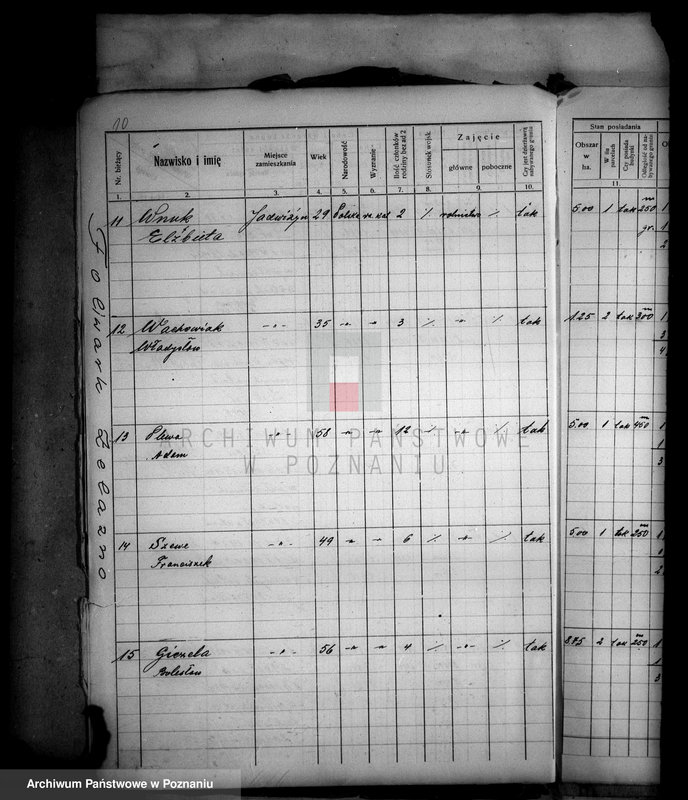 10
Nr. bieżący
Nazwisko i imię
Miejsce zamieszkania
Wiek
Narodowość
Wyznanie
Ilość członków rodziny bez ad 2
Stosunek wojsk.
Zajęcie
główne
poboczne
Czy jest dzierżawcą nabywanego gruntu
Stan posiadania
Obszar w ha.
W ilu parcelach
Czy posiada budynki
Odległość od nabywanego gruntu
1. 2. 3. 4. 5. 6. 7. 8. 9. 10. 11.
Folwark Żelazno
11 Wnuk 29 Polska rz. kat 2 ⁒ rolnictwo ⁒ tak 5.00 1 tak 250 m
Elżbieta gr.
12 Wachowiak -"- 35 -"- -"- 3 ⁒ -"- ⁒ tak 1.25 2 tak 300 m
Władysław
13 Plewa -"- 58 -"- -"- 12 ⁒ -"- ⁒ tak 5.00 1 tak 450 m
Adam
14 Szewc -"- 49 -"- -"- 6 ⁒ -"- ⁒ tak 5.00 1 tak 250 m
Franciszek
15 -"- 56 -"- -"- 4 ⁒ -"- ⁒ tak 8.75 2 tak 250 m
Bolesław
ARCHIWUM PAŃSTWOWE
W POZNANIU
Archiwum Państwowe w Poznaniu